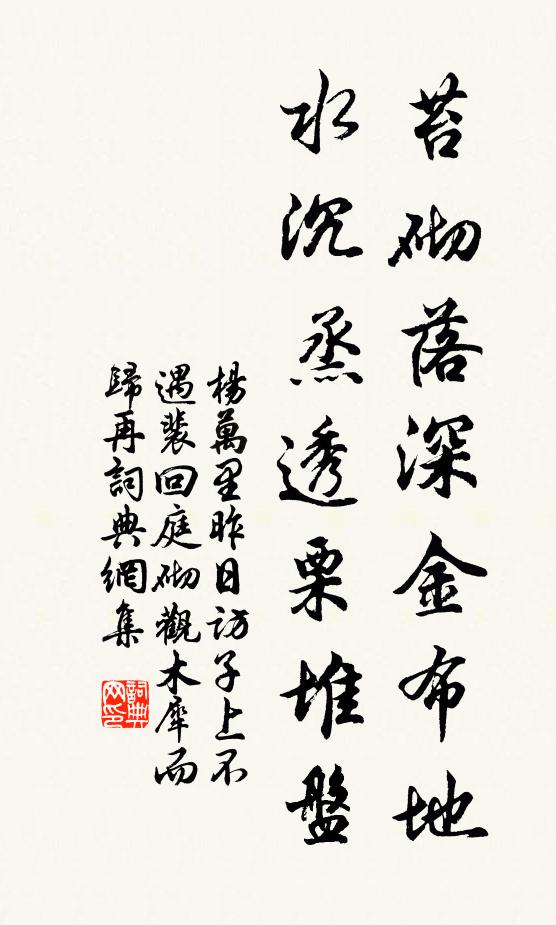 苔砌落深金布地
水沉蒸透栗堆盤
楊萬里昨日訪子上不
遇裴回庭砌觀木犀而
歸再詞典網集
詞典
网印